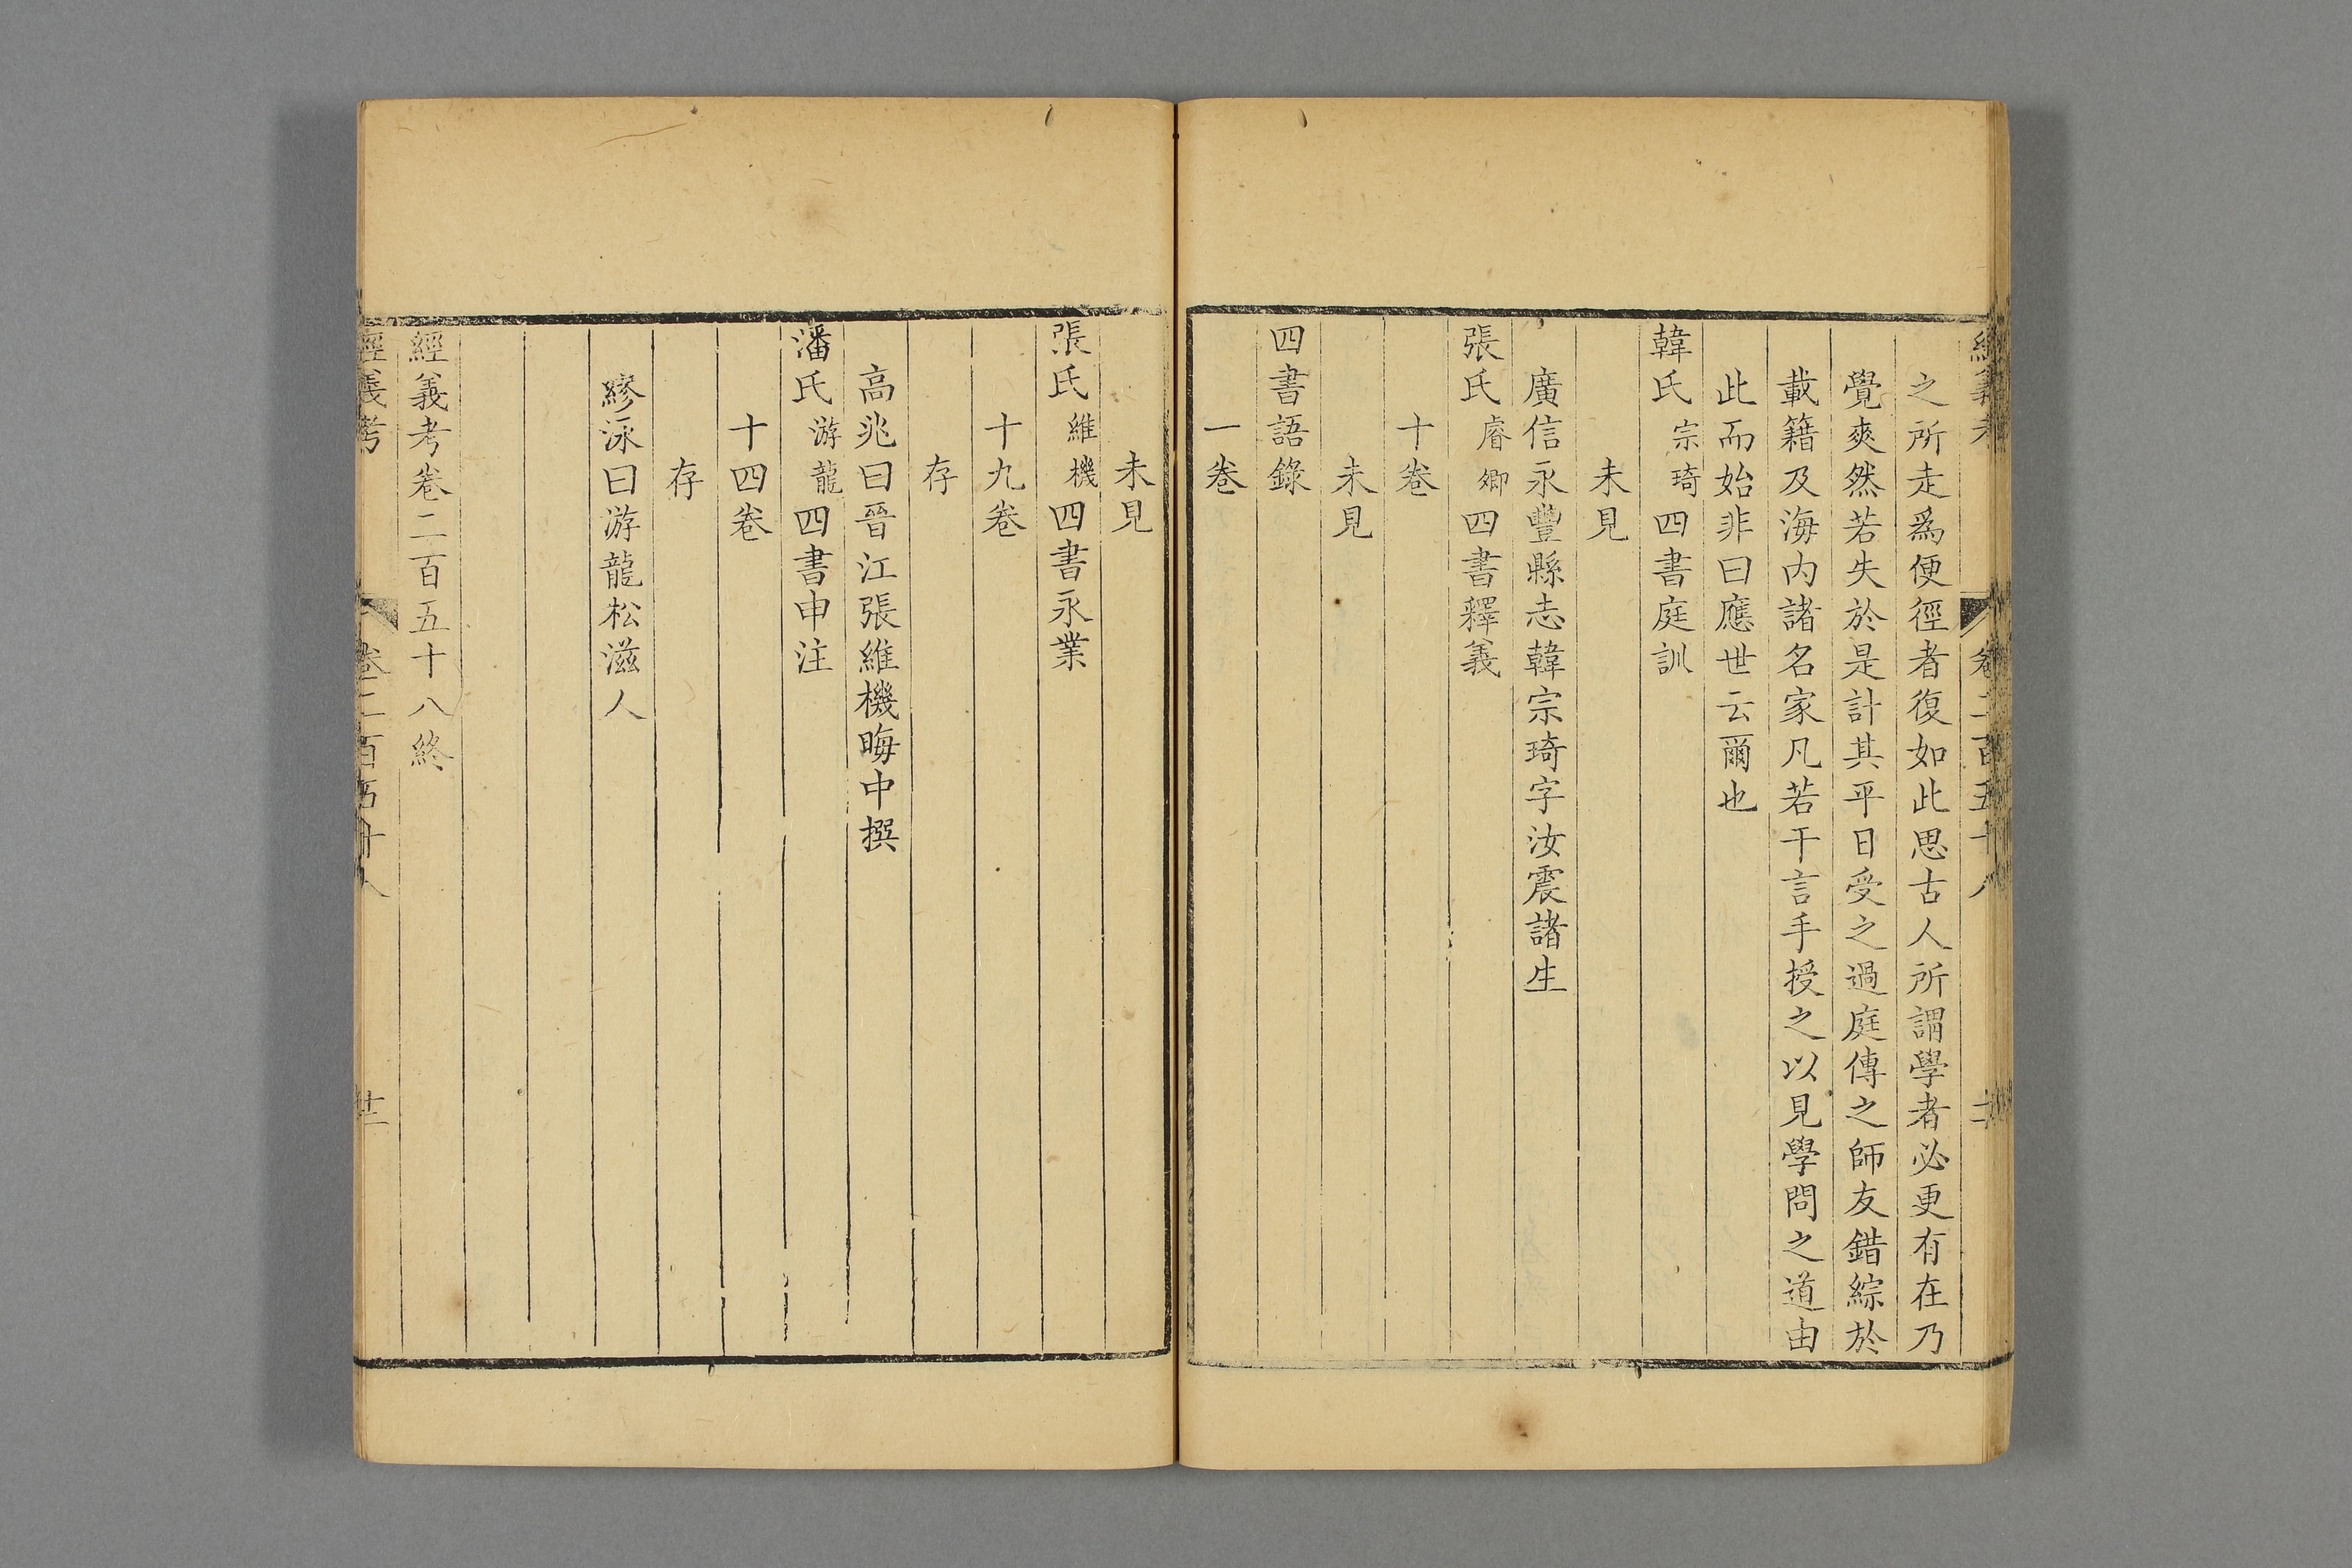 之所走爲便徑者復如此思古人所謂學者必更有在乃
覺爽然若失於是計其平日受之過庭傳之師友錯綜於
載籍及海内諸名家凡若干言手授之以見學問之道由
此而始非曰應世云爾也
韓氏宗琦四書庭訓
未見
廣信永豐縣志韓宗琦字汝震諸生
張氏睿卿四書釋義
十卷
未見
四書語錄
一卷
未見
張氏維機四書永業
十九卷
存
高兆曰晉江張維機晦中撰
潘氏游龍四書申注
十四卷
存
繆泳曰游龍松滋人
經義考卷二百五十八終
經義考 卷二百五十八